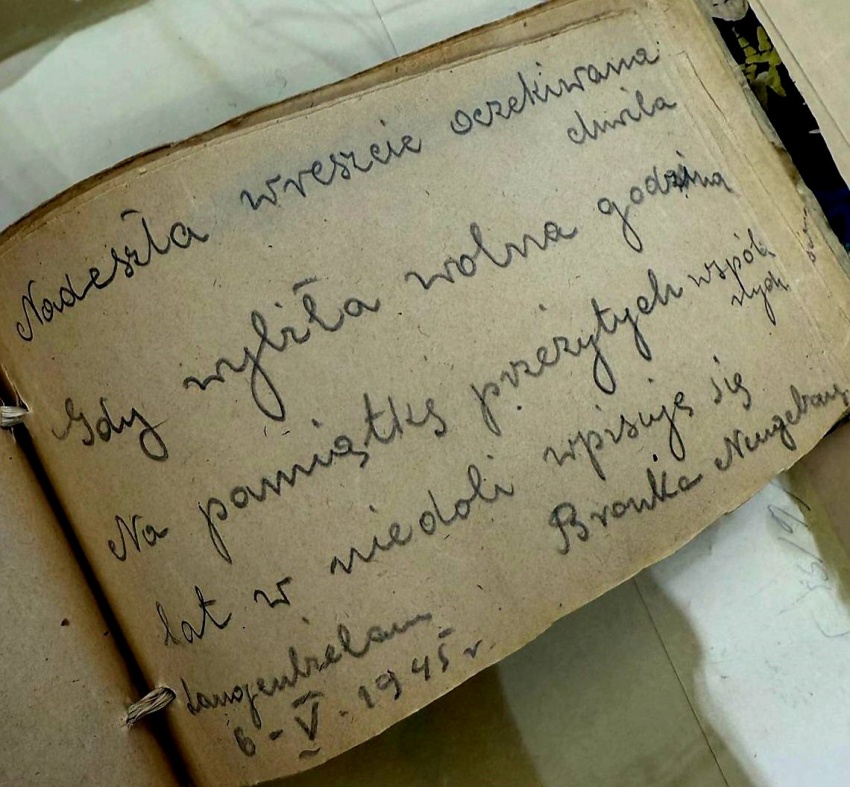 Nadeszła wreszcie oczekiwana
chwila
Gdy wybiła wolna godzina
Na pamiątkę przeżytych wspól
nych
lat w niedoli wpisuję się
Bronka
Langenbielau
6-V-1945 r.